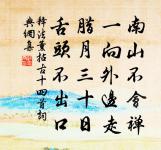 南山不會禪
一向外邊走
臘月三十日
舌頭不出口
釋法薰拈古十四首詞
典網集